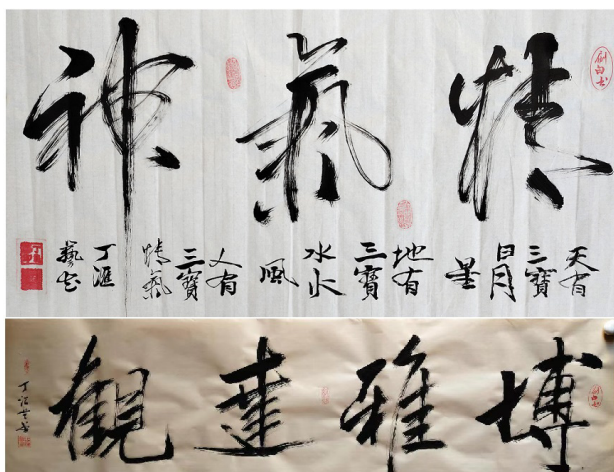 精氣神
天有
三寶
日月
星
地有
三寶
水火
風
人有
三寶
精氣
丁滙
博雅達觀